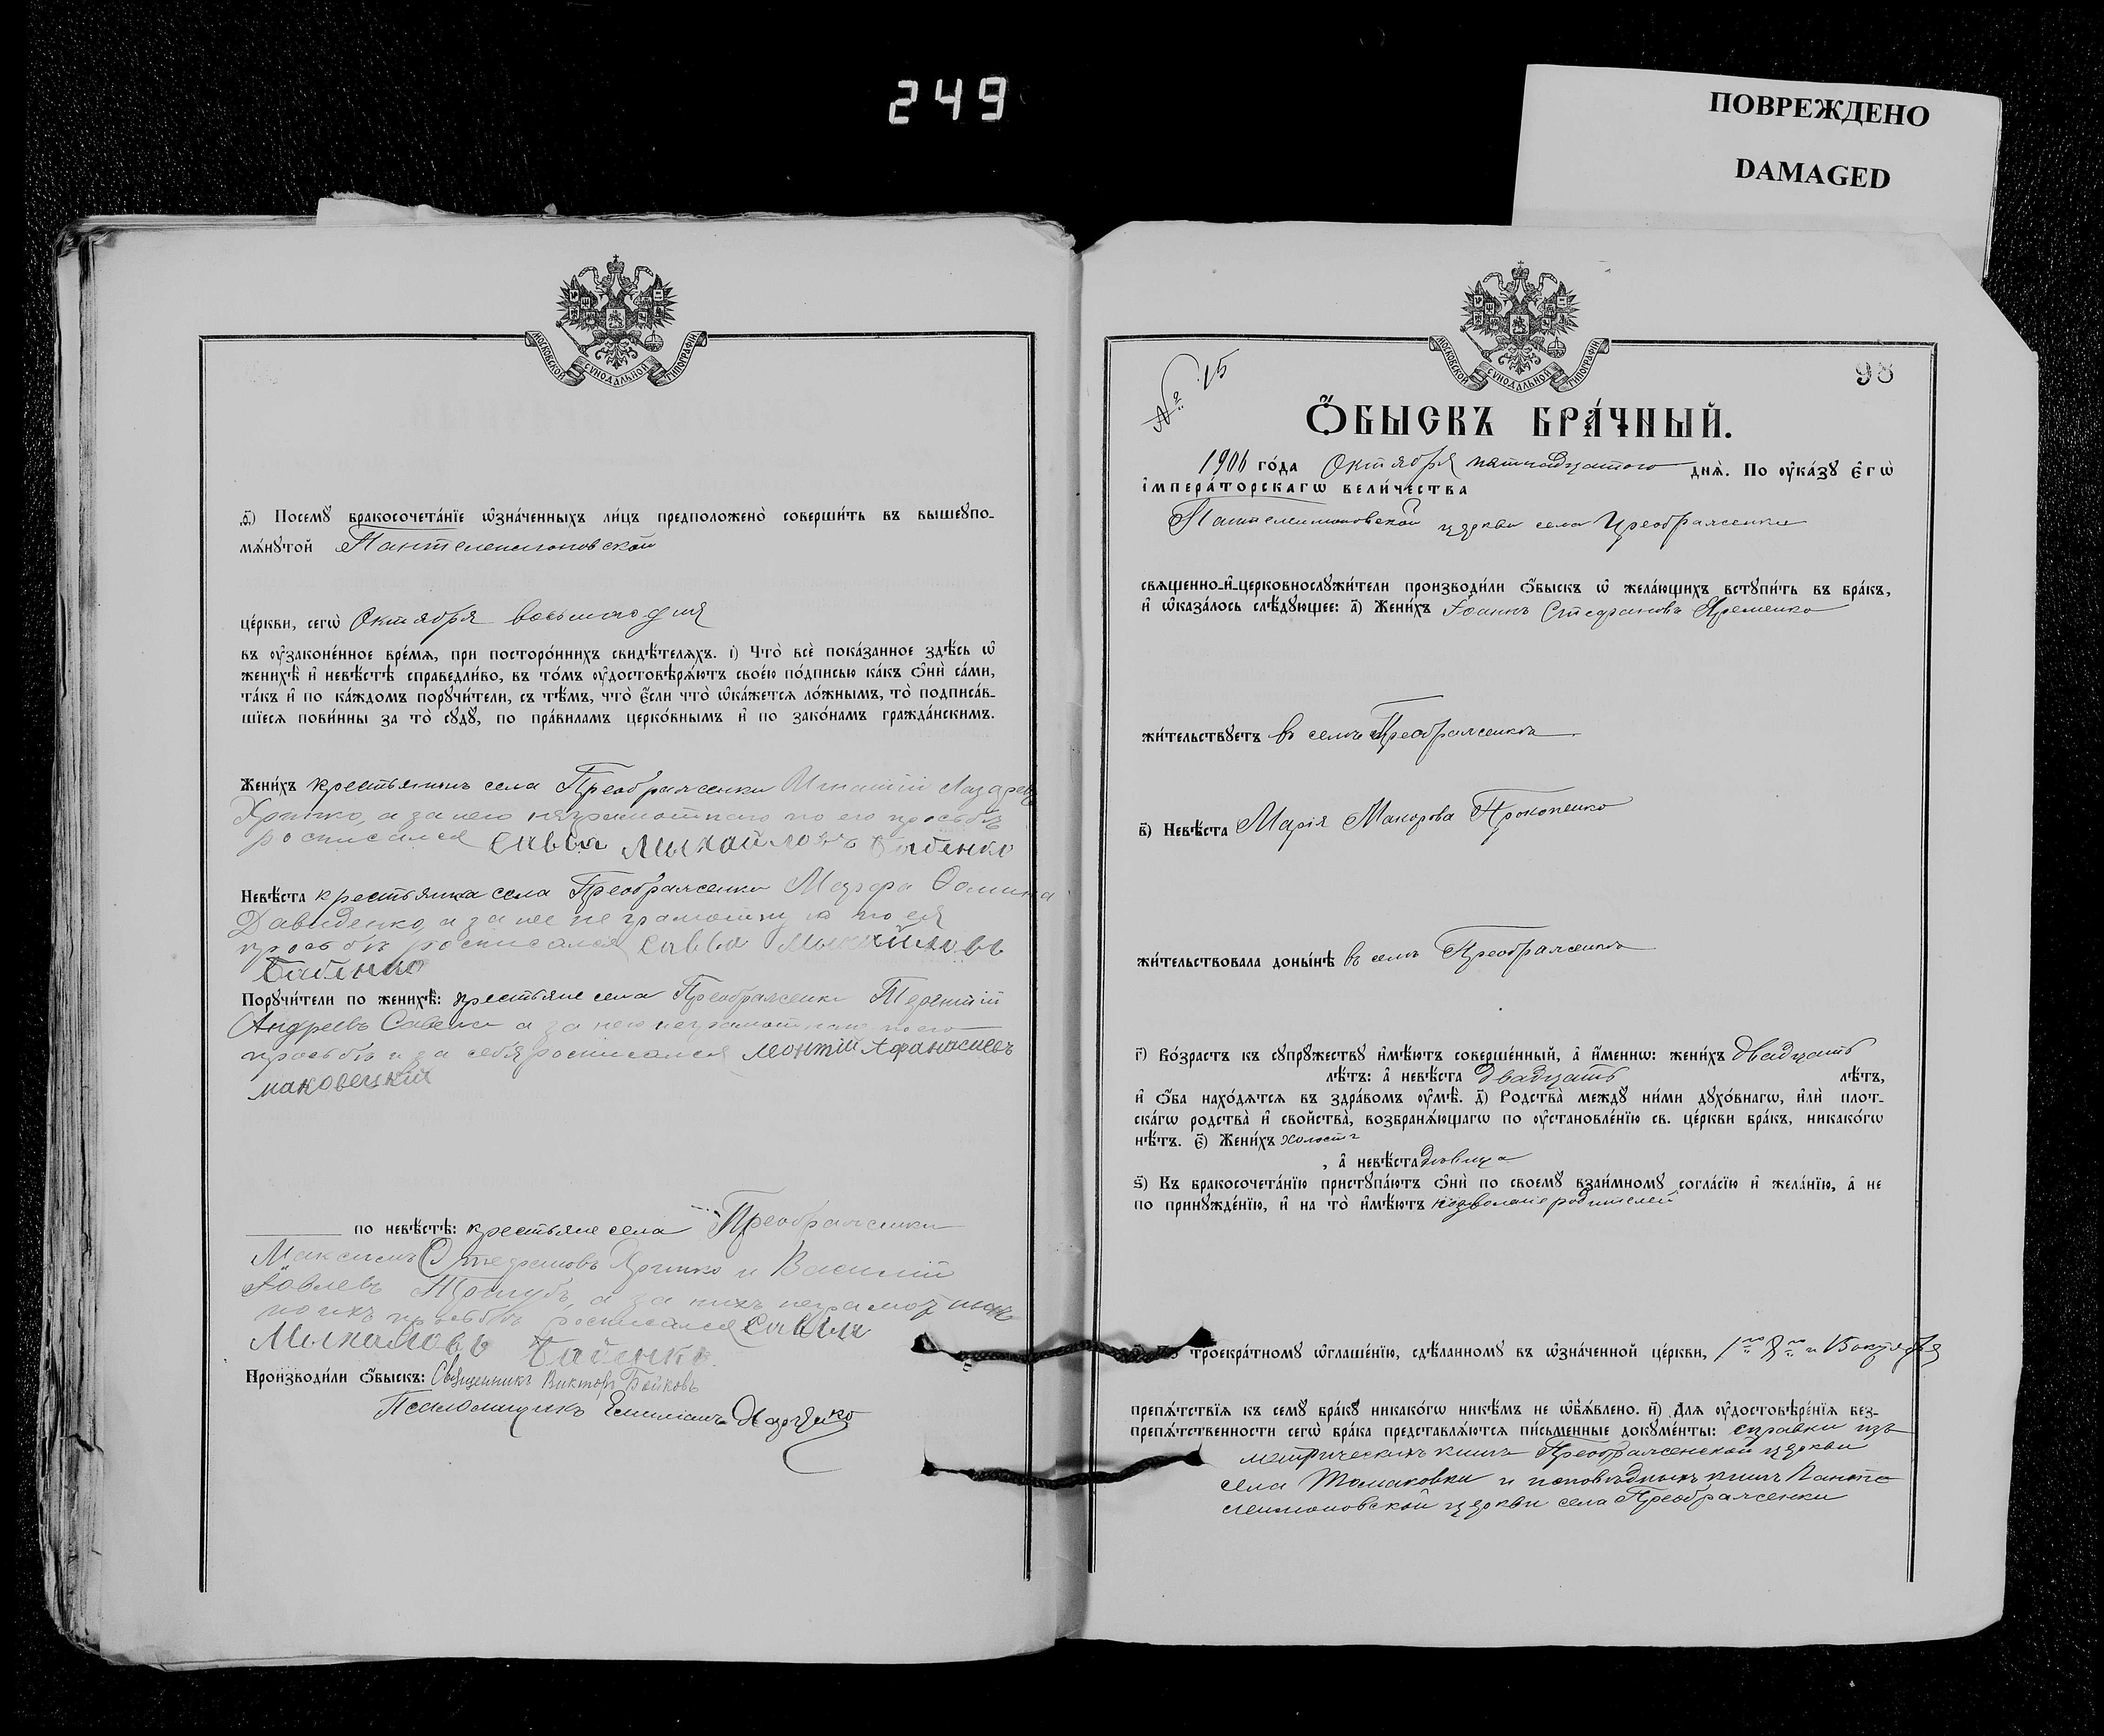 249
ПОВРЕЖДЕНО
DAMAGED
МОСКОВСКОЙ СУНОДАЛЬНОЙ ТИПОГРАФІИ
ѳ҃) Посемꙋ бракосочета́нїе ѡ҆зна́ченныхъ ли́цъ предположено̀ соверши́ть въ вышеꙋпо-
мѧ́нꙋтой Пантелеимоновской
це́ркви, сегѡ̀ Октября восьмаго дня
въ ᲂу҆законе́нное вре́мѧ, при посторо́ннихъ свидѣ́телѧхъ. і҃) Что̀ всѐ пока́занное здѣ́сь ѡ҆
женихѣ̀ и҆ невѣ́стѣ справедли́во, въ то́мъ ᲂу҆достовѣрѧ́ютъ свое́ю по́дписью ка́къ ѻ҆нѝ са́ми,
та́къ и҆ по ка́ждомъ порꙋчи́тели, съ тѣ́мъ, что̀ є҆́сли что̀ ѡ҆ка́жетсѧ ло́жнымъ, то̀ подписа́в-
шїесѧ пови́нны за то̀ сꙋдꙋ̀, по пра́виламъ церко́внымъ и҆ по зако́намъ гражда́нскимъ.
Жени́хъ крестьянинъ села Преображенки Игнатій Лазаревъ
Хритко, а за него неграмотнаго по его просьбѣ
росписался Савва Мыхайловъ Бабенко
Невѣ́ста крестьянка села Преображенки Марѳа Ѳомина
Давиденко, а за нее неграмотную по ея
просьбѣ росписался Савва Мыхайловъ
Бабенко
Порꙋчи́тели по женихѣ̀: крестьяне села Преображенки Терентій
Андреевъ Савела а за него неграмотнаго по его
просьбѣ и за себя росписался Леонтій Афанасиевъ
маковецкій
по невѣ́стѣ: крестьяне села Преображенки
Максимъ Стефановъ Хритко и Василій
Іовлевъ а за нихъ неграмотныхъ
по ихъ просьбѣ росписался Савва
Мыхаловъ Бабенко
Производи́ли ѻ҆́быскъ: Священникъ Викторъ Бойковъ
Псаломщикъ Емиліанъ
МОСКОВСКОЙ СУНОДАЛЬНОЙ ТИПОГРАФІИ
№ 15
98
Ѻ҆́БЫСКЪ БРА́ЧНЫЙ.
1906 го́да Октября пятнадцатого днѧ̀. По ᲂу҆ка́зꙋ є҆гѡ̀
і҆мпера́торскагѡ вели́чества
Пантелеимоновской церкви села Преображенки
свѧщенно-и҆-церковнослꙋжи́тели производи́ли ѻ҆́быскъ ѡ҆ жела́ющихъ встꙋпи́ть въ бра́къ,
и҆ ѡ҆каза́лось слѣ́дꙋющее: а҃) Жени́хъ Іоаннъ Стефановъ Яременко
жи́тельствꙋетъ въ селѣ Преображенкѣ
в҃) Невѣ́ста Марія Макарова Прокопенко
жи́тельствовала доны́нѣ въ селѣ Преображенкѣ
г҃) Во́зрастъ къ сꙋпрꙋ́жествꙋ и҆мѣ́ютъ соверше́нный, а҆ и҆́меннѡ: жени́хъ двадцать
лѣ́тъ: а҆ невѣ́ста двадцать лѣ́тъ,
и҆ ѻ҆́ба нахо́дѧтсѧ въ здра́вомъ ᲂу҆мѣ̀. д҃) Родства̀ междꙋ̀ ни́ми дꙋхо́внагѡ, и҆лѝ плот-
ска́гѡ родства̀ и҆ сво́йства̀, возбранѧ́ющагѡ по ᲂу҆становле́нїю св. це́ркви бра́къ, никако́гѡ
нѣ́тъ. є҃) Жени́хъ холостъ
, а҆ невѣ́ста дѣвица
ѕ҃) Къ бракосочета́нїю пристꙋпа́ютъ ѻ҆нѝ по своемꙋ̀ взаи́мномꙋ согла́сїю и҆ жела́нїю, а҆ не
по принꙋжде́нїю, и҆ на то̀ и҆мѣ́ютъ позволеніе родителей
троекра́тномꙋ ѡ҆глаше́нїю, сдѣ́ланномꙋ въ ѡ҆зна́ченной це́ркви, 1го 8го и Воктября
препѧ́тствїѧ къ семꙋ̀ бра́кꙋ никако́гѡ никѣ́мъ не ѡ҆б̾ѧ́влено. и҃) Длѧ̀ ᲂу҆достовѣре́нїѧ без-
препѧ́тственности сегѡ̀ бра́ка представлѧ́ютсѧ пи́сьменные докꙋме́нты: справки изъ
метрическихъ книгъ Преображенской церкви
села Томаковки и исповѣдныхъ книгъ Панте
леимоновской церкви села Преображенки